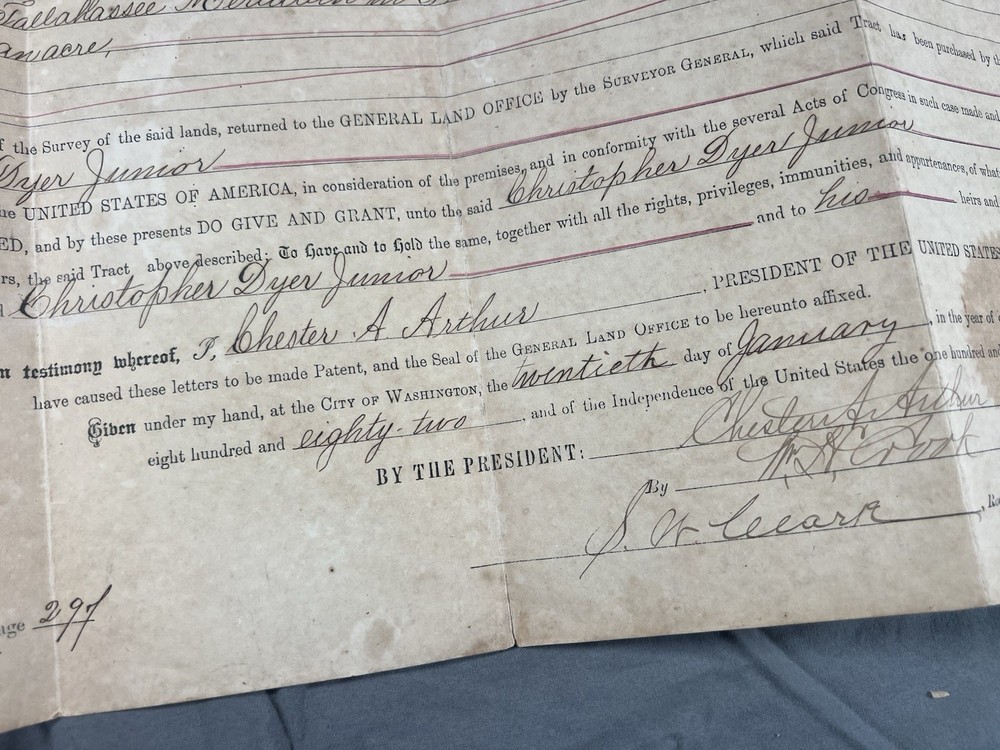 Tallahassee Meridian in
an acre,
the Survey of the said lands, returned to the GENERAL LAND OFFICE by the SURVEYOR GENERAL, which said Tract has been purchased by the
Dyer Junior
UNITED STATES OF AMERICA, in consideration of the premises, and in conformity with the several Acts of Congress in such case made and
ED, and by these presents DO GIVE AND GRANT, unto the said Christopher Dyer Junior
rs, the said Tract above described; To Have and to Hold the same, together with all the rights, privileges, immunities, and appurtenances, of what
Christopher Dyer Junior and to his heirs and
n testimony whereof, I, Chester A. Arthur, PRESIDENT OF THE UNITED STATES
have caused these letters to be made Patent, and the Seal of the GENERAL LAND OFFICE to be hereunto affixed.
Given under my hand, at the CITY OF WASHINGTON, the twentieth day of January, in the year of
eight hundred and eighty-two, and of the Independence of the United States the one hundred and
BY THE PRESIDENT: Chester A. Arthur
By W. H. Crook
S. W. Clark,
age 297